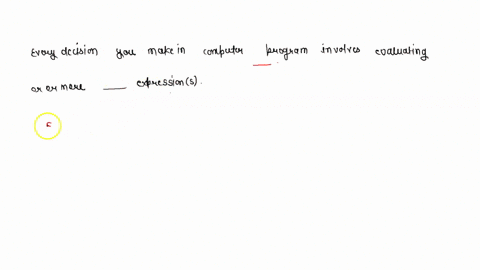 Every decision you make in computer program involves evaluating
or or more ___ expression(s).